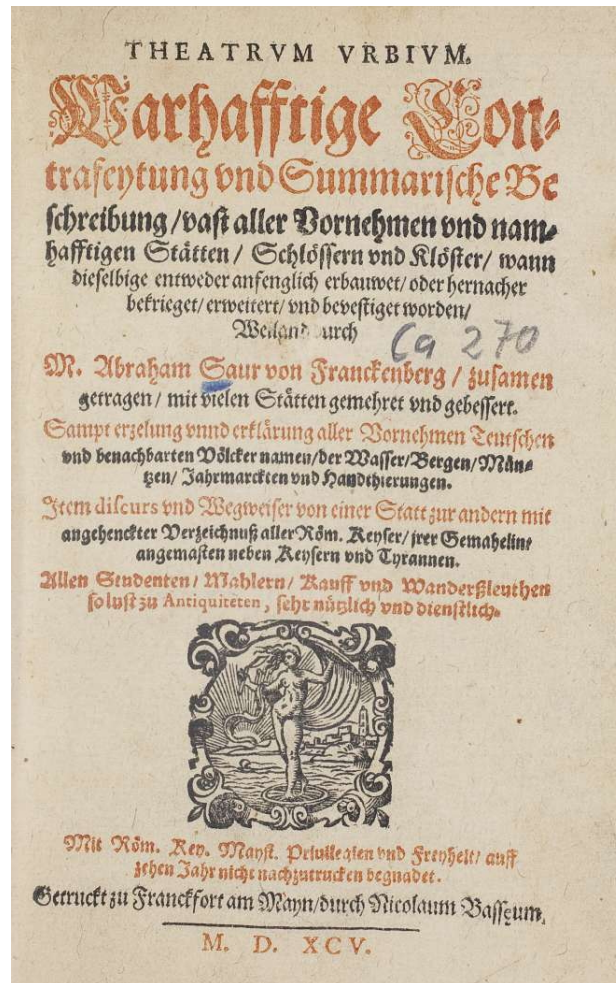 THEATRVM VRBIVM.
Warhafftige Con-
trafeytung vnd Summarische Be
schreibung / vast aller Vornehmen vnd nam-
hafftigen Stätten / Schlössern vnd Klöster / wann
dieselbige entweder anfenglich erbauwet / oder hernacher
bekrieget / erweitert / vnd bevestiget worden /
Weiland durch
Ca 270
M. Abraham Saur von Franckenberg / zusamen
getragen / mit vielen Stätten gemehret vnd gebessert.
Sampt erzelung vnnd erklärung aller Vornehmen Teutschen
vnd benachbarten Völcker namen / der Wasser / Bergen / Mün-
tzen / Jahrmarckten vnd Handthierungen.
Item discurs vnd Wegweiser von einer Statt zur andern mit
angehenckter Verzeichnuß aller Röm. Keyser / jrer Gemahelin /
angemasten neben Keysern vnd Tyrannen.
Allen Studenten / Mahlern / Kauff vnd Wanderßleuthen
so lust zu Antiquiteten, sehr nützlich vnd dienstlich.
Mit Röm. Key. Mayst. Priuilegien vnd Freyheit / auff
zehen Jahr nicht nachzutrucken begnadet.
Getruckt zu Franckfort am Mayn / durch Nicolaum Bassęum.
M. D. XCV.